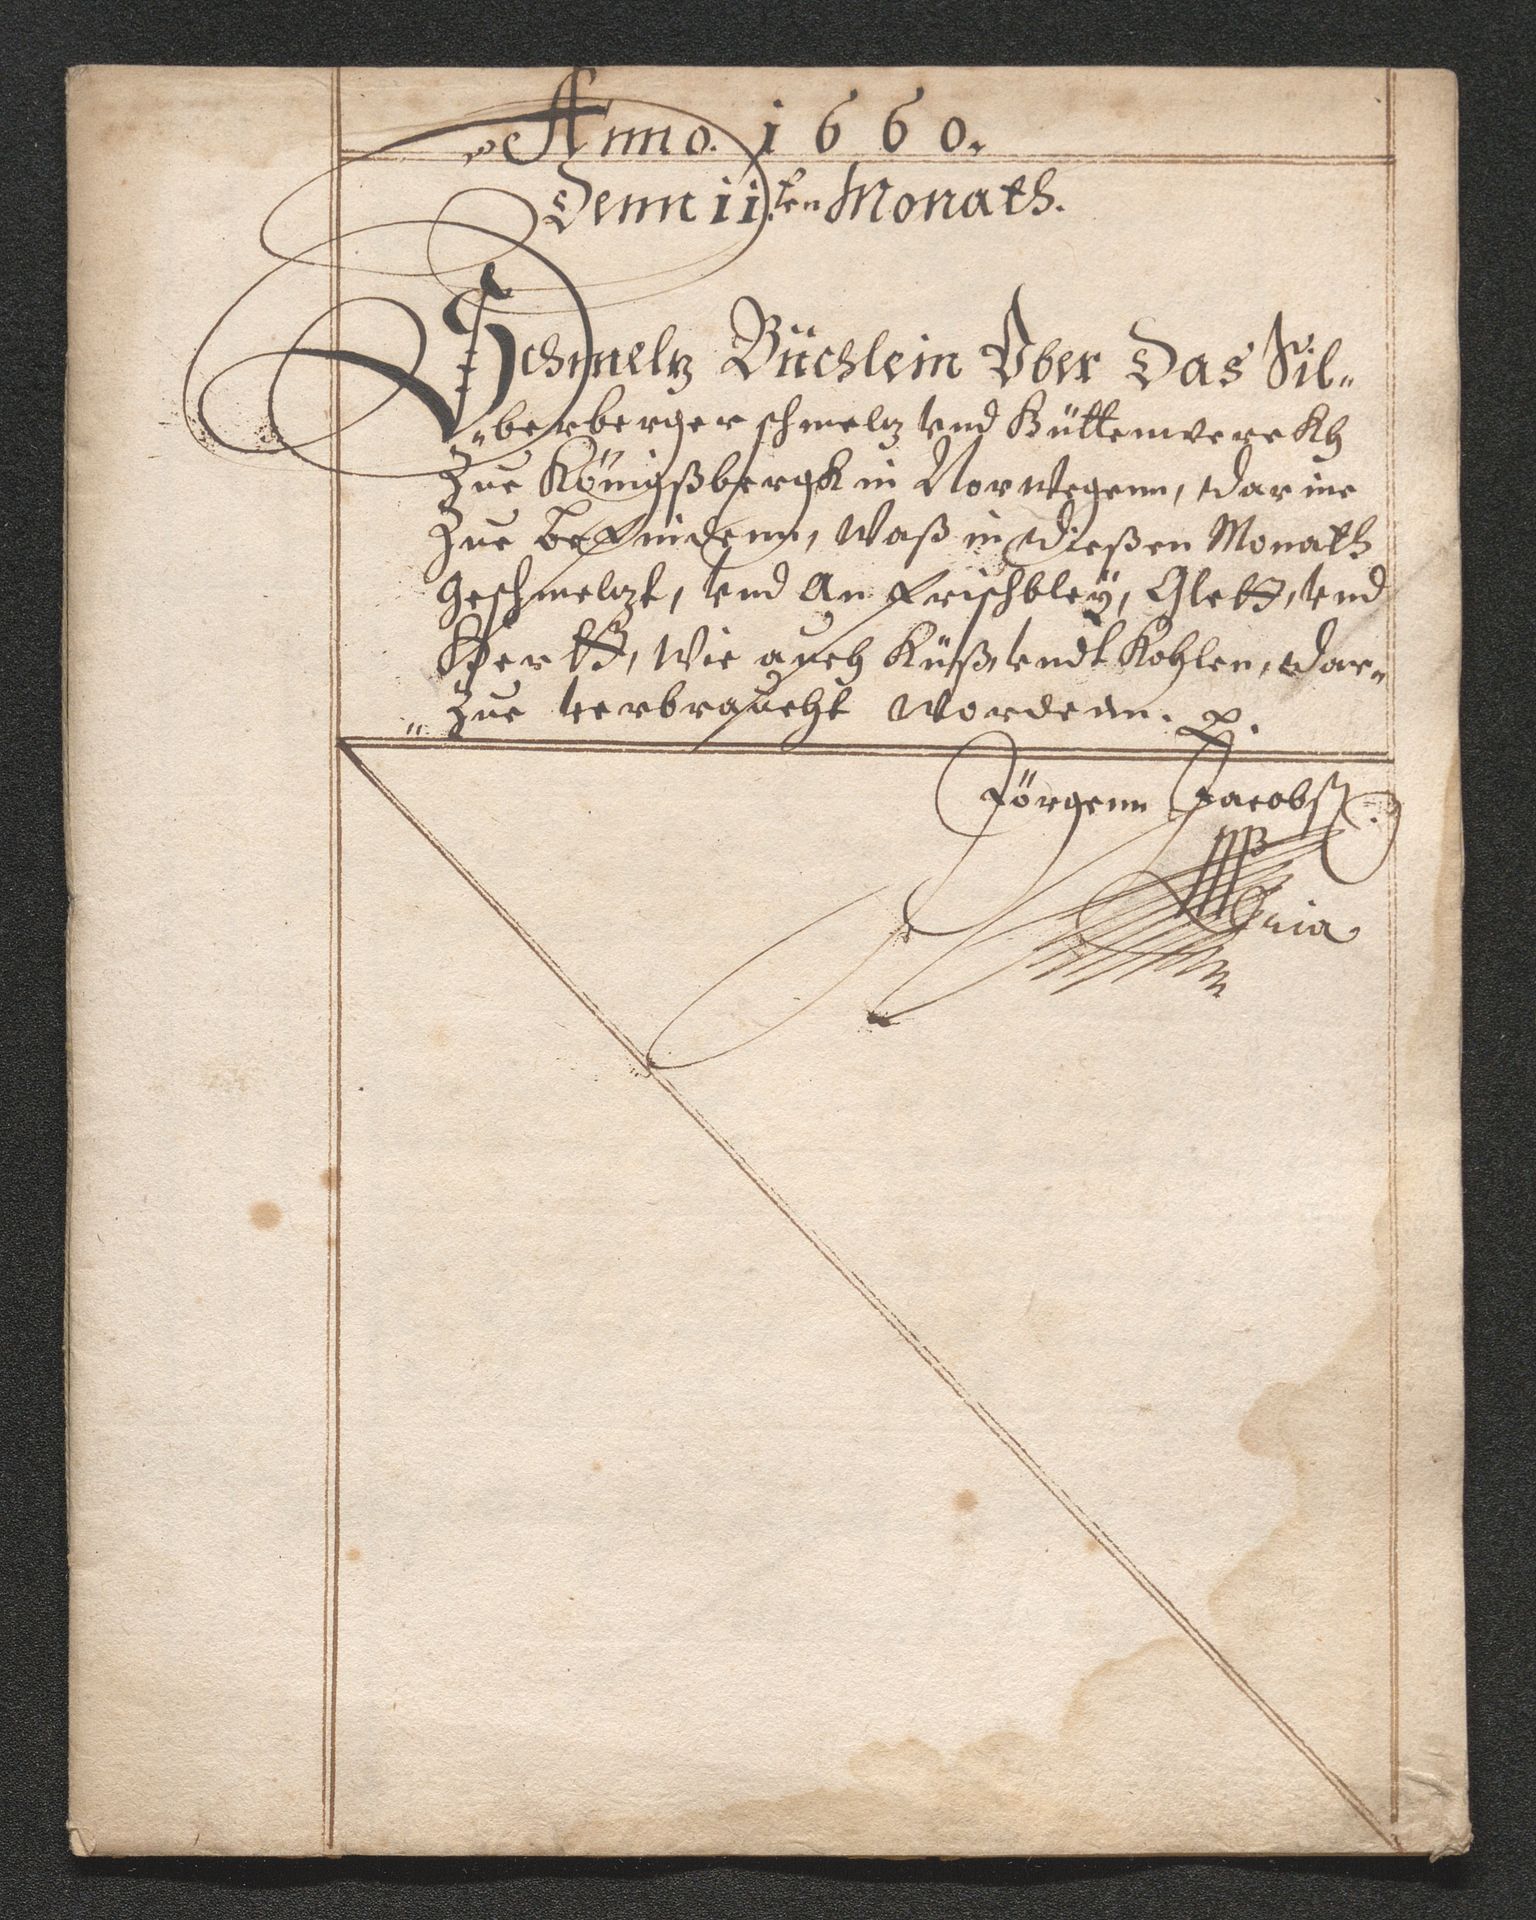 Anno. 1660.
Denn 11.ten Monath.
Schmeltz Büchlein Vber Das Sil„
„berberger schmeltz vnd Hüttenwerckh
Zue Königßbergk in Norwegenn, darine
Zue befindenn, Waß in dießen Monath
Geschmeltzt, vnd An Frischbley, Glett, vnd
Hertt, Wie auch Küß, vndt Kohlen, dar„
„Zue verbraucht wordenn. p.
Jörgenn Jacobß.